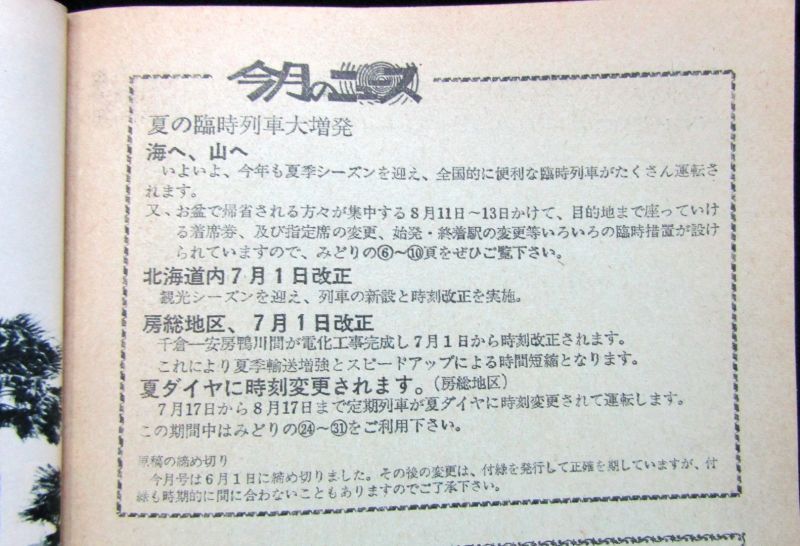 今月のニュース
夏の臨時列車大増発
海へ、山へ
いよいよ、今年も夏季シーズンを迎え、全国的に便利な臨時列車がたくさん運転さ
れます。
又、お盆で帰省される方々が集中する8月11日〜13日かけて、目的地まで座っていけ
る着席券、及び指定席の変更、始発・終着駅の変更等いろいろの臨時措置が設け
られていますので、みどりの⑥〜⑩頁をぜひご覧下さい。
北海道内7月1日改正
観光シーズンを迎え、列車の新設と時刻改正を実施。
房総地区、7月1日改正
千倉―安房鴨川間が電化工事完成し7月1日から時刻改正されます。
これにより夏季輸送増強とスピードアップによる時間短縮となります。
夏ダイヤに時刻変更されます。(房総地区)
7月17日から8月17日まで定期列車が夏ダイヤに時刻変更されて運転します。
この期間中はみどりの㉔〜㉛をご利用下さい。
原稿の締め切り
今月号は6月1日に締め切りました。その後の変更は、付録を発行して正確を期していますが、付
録も時期的に間に合わないこともありますのでご了承下さい。